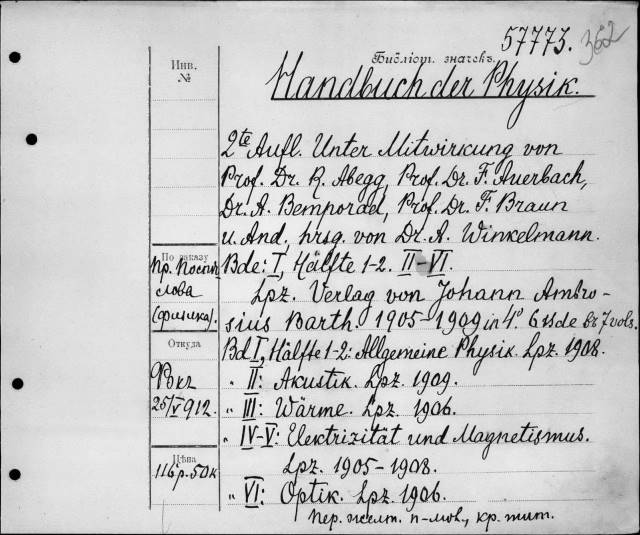 57773. 362
Инв.
№
Библіот. значекъ.
Handbuch der Physik.
2te Aufl. Unter Mitwirkung von
Prof. Dr. R. Abegg, Prof. Dr. F. Auerbach,
Dr. A. Bemporad, Prof. Dr. F. Braun
u. And., hrsg. von Dr. A. Winkelmann.
По заказу
Пр. Поспѣ-
слова
(физика).
Bde: I, Hälfte 1-2. II-VI.
Lpz. Verlag von Johann Ambro-
sius Barth. 1905-1909 in 4º. 6 Bde in 7 vols.
Откуда
Рокг
25/V 912.
Bd I, Hälfte 1-2: Allgemeine Physik. Lpz. 1908.
" II: Akustik. Lpz. 1909.
" III: Wärme. Lpz. 1906.
" IV-V: Elektrizität und Magnetismus.
Lpz. 1905-1908.
Цѣна
116 р. 50 к
" VI: Optik. Lpz. 1906.
Пер. желт. п-мов., кр. тит.